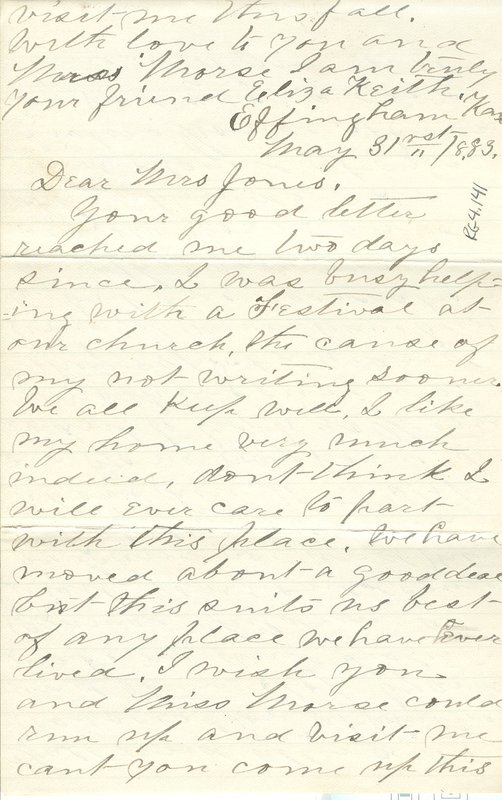 visit me this fall.
With love to you and
Miss Morse I am truly
your friend Eliza Keith.
Effingham, Kan
May 31st 1883.
RG4.141
Dear Mrs Jones,
Your good letter
reached me two days
since, I was busy help=
=ing with a Festival at
our church, the cause of
my not writing sooner.
We all keep well, I like
my home very much
indeed, dont think I
will ever care to part
with this place. We have
moved about a good deal
but this suits us best
of any place we have Ever
lived. I wish you
and Miss Morse could
run up and visit me
cant you come up this